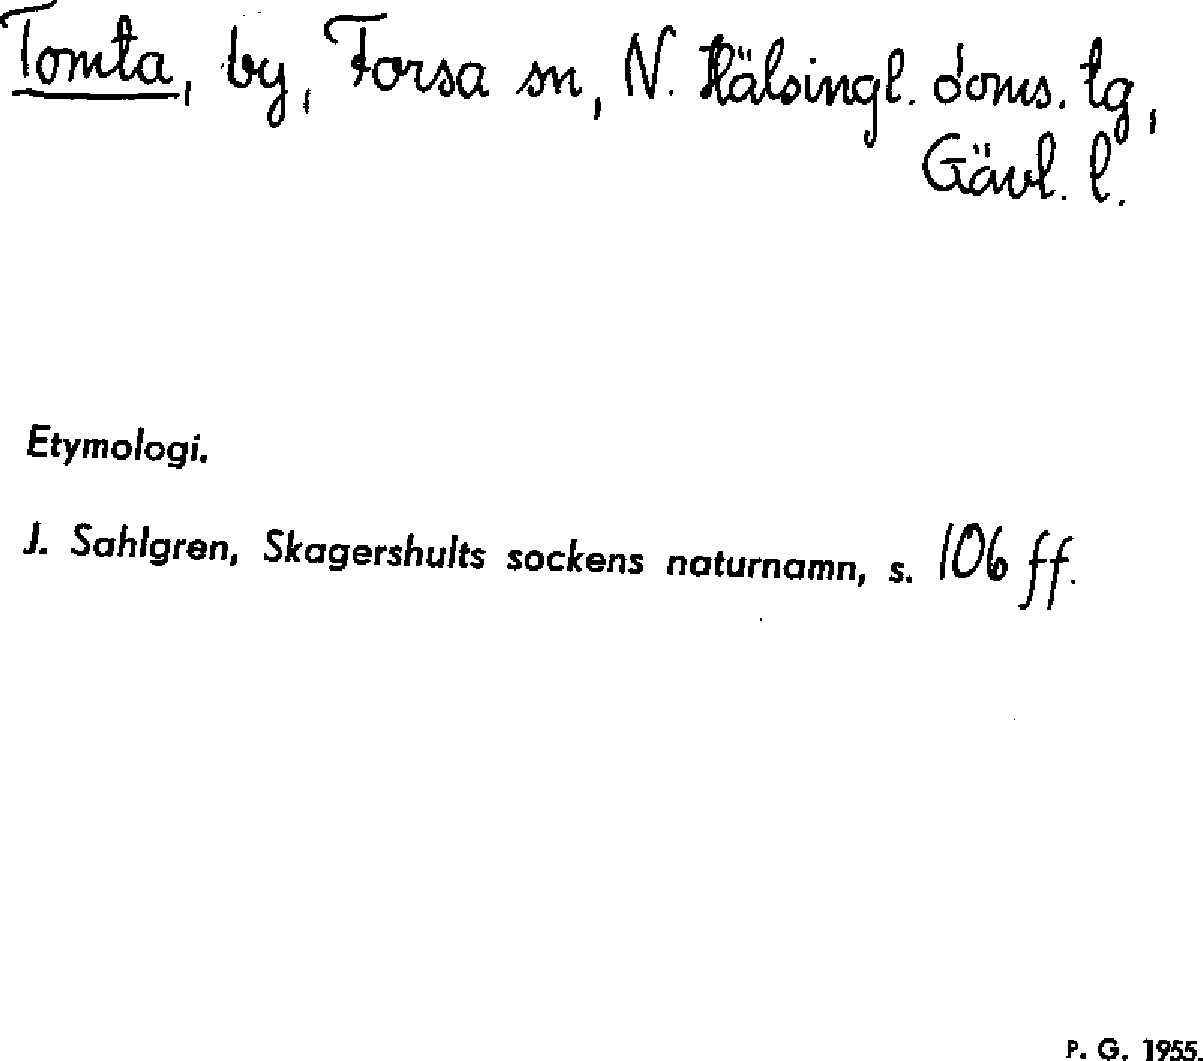 Tomta, by, Forsa sn, N. Hälsingl. doms. tg,
Gävl. l.
Etymologi.
J. Sahlgren, Skagershults sockens naturnamn, s. 106 ff.
P. G. 1955.